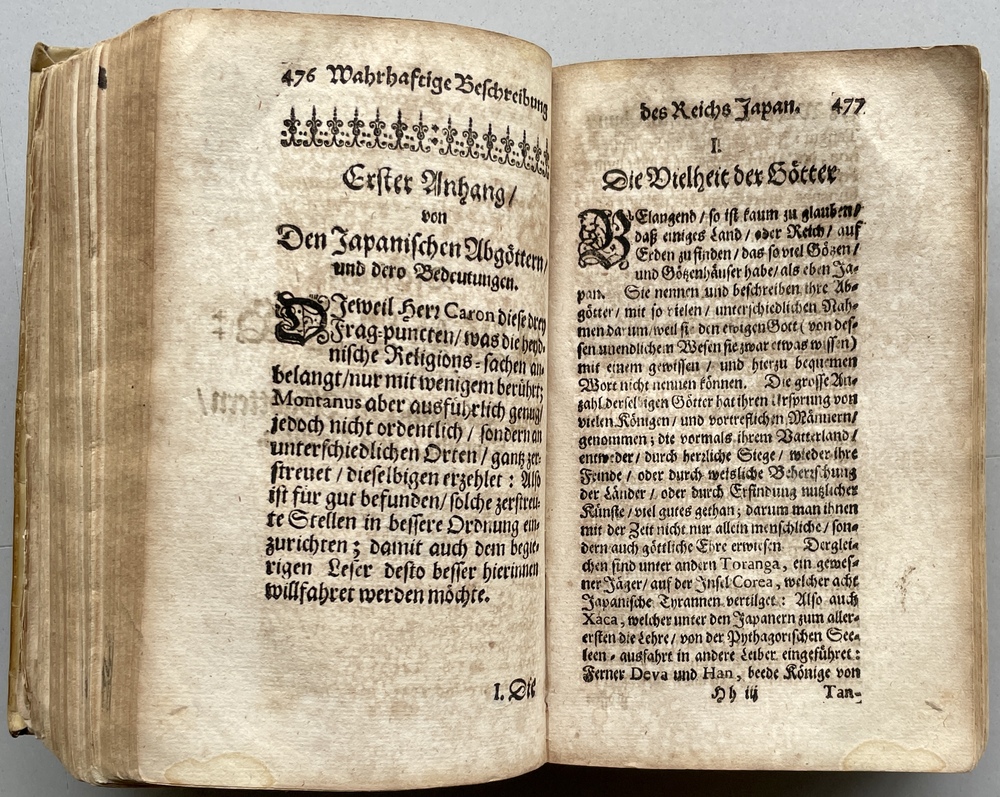 476 Wahrhaftige Beschreibung
Erster Anhang/
von
Den Japanischen Abgöttern/
und dero Bedeutungen.
DJeweil Herr Caron diese drey
Frag-puncten/ was die heyd-
nische Religions-sachen an-
belangt/ nur mit wenigem berührt;
Montanus aber ausführlich genug/
jedoch nicht ordentlich/ sondern an
unterschiedlichen Orten/ gantz zer-
streuet/ dieselbigen erzehlet: Also
ist für gut befunden/ solche zerstreu-
te Stellen in bessere Ordnung ein-
zurichten; damit auch dem begie-
rigen Leser desto besser hierinnen
willfahret werden möchte.
I. Die
des Reichs Japan. 477
I.
Die Vielheit der Götter
BElangend/ so ist kaum zu glauben/
daß einiges Land/ oder Reich/ auf
Erden zu finden/ das so viel Götzen/
und Götzenhäuser habe/ als eben Ja-
pan. Sie nennen und beschreiben ihre Ab-
götter/ mit so vielen/ unterschiedlichen Nah-
men darum/ weil sie den ewigen Gott (von des-
sen unendlichem Wesen sie zwar etwas wissen)
mit einem gewissen/ und hierzu bequemen
Wort nicht nennen können. Die grosse An-
zahl derselbigen Götter hat ihren Ursprung von
vielen Königen/ und vortreflichen Männern/
genommen; die vormals ihrem Vatterland/
entweder/ durch herrliche Siege/ wieder ihre
Feinde/ oder durch weisliche Beherrschung
der Länder/ oder durch Erfindung nutzlicher
Künste/ viel gutes gethan; darum man ihnen
mit der Zeit nicht nur allein menschliche/ son-
dern auch göttliche Ehre erwiesen Derglei-
chen sind unter andern Toranga, ein gewes-
ner Jäger/ auf der Jnsel Corea, welcher acht
Japanische Tyrannen vertilget: Also auch
Xaca, welcher unter den Japanern zum aller-
ersten die Lehre/ von der Pythagorischen See-
leen-ausfahrt in andere Leiber eingeführet:
Ferner Deva und Han, beede Könige von
Hh iij Tan-